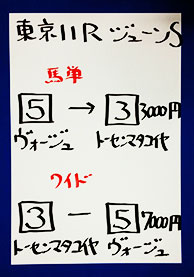 東京11R ジューンS
馬単
5 → 3 3000円
ヴォージュ トーセンマタコイヤ
ワイド
3 - 5 7000円
トーセンマタコイヤ ヴォージュ